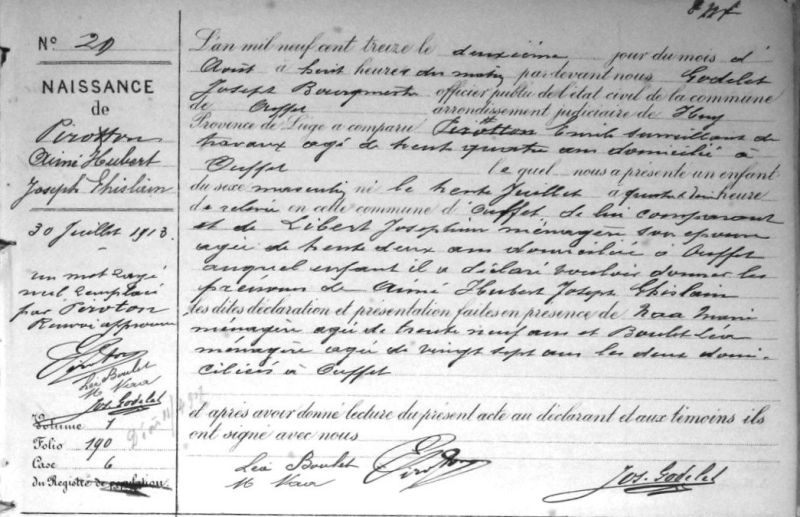 No 20
NAISSANCE
de
Pirotton
Aimé Hubert
Joseph Ghislain
30 Juillet 1913.
un mot rayé
nul remplacé
par Piroton
Renvoi approuvé
Léa Boulet
M Naa
Jos. Godelet
Volume 1
Folio 190
Case 6
du Registre de population
L'an mil neuf cent treize le deuxième jour du mois d'
Août à huit heures du matin par devant nous Godelet
Joseph Bourgmestre officier public de l'état civil de la commune
de Ouffet arrondissement judiciaire de Huy
Province de Liège a comparu Pirotton Emile surveillant de
travaux agé de trente quatre ans domicilié à
Ouffet lequel nous a présenté un enfant
du sexe masculin né le trente Juillet à quatre heure
de relevée en cette commune d'Ouffet, de lui comparant
et de Libert Joséphine ménagère son épouse
agée de trente deux ans domiciliée à Ouffet
auquel enfant il a déclaré vouloir donner les
prénoms de Aimé Hubert Joseph Ghislain
les dites déclaration et présentation faites en présence de Naa Marie
ménagère agée de trente neuf ans et Boulet Léa
ménagère agée de vingt sept ans les deux domi-
ciliées à Ouffet
et après avoir donné lecture du présent acte au déclarant et aux témoins ils
ont signé avec nous
Léa Boulet
M Naa
Jos. Godelet